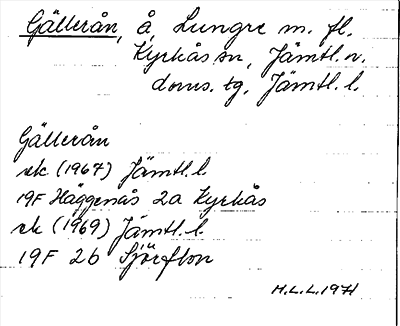 Gällerån, å, Lungre m. fl.
Kyrkås sn, Jämtl. n.
doms. tg, Jämtl. l.
Gällerån
ek (1967) Jämtl. l.
19F Häggenås 2a Kyrkås
ek (1969) Jämtl. l.
19F 2b Sjör
H.L.L. 1971